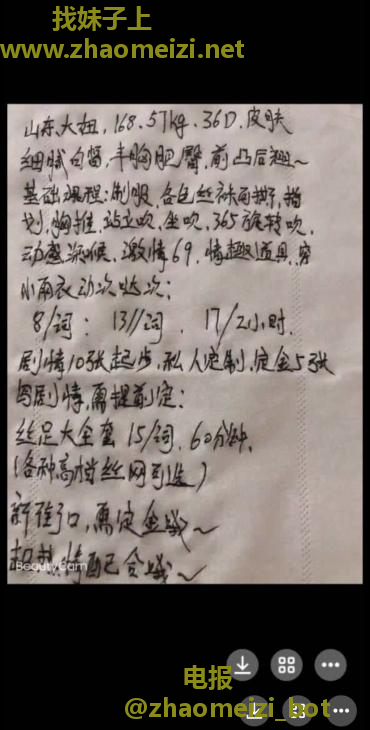 找妹子上
www.zhaomeizi.net
山东大妞，168.57kg.36D.皮肤
细腻白皙，丰胸肥臀，前凸后翘～
基础课程：制服，各色丝袜可撕，指
划，胸推，站立吹，坐吹，365旋转吹，
动感深喉，激情69，情趣道具，穿
小雨衣动次哒次；
8/词： 13//词 . 17/2小时.
剧情10张起步，私人定制，定金5张
剧情，需提前定；
丝足大全套 15/词，60分钟，
（各种高档丝网可选）
新狼，需定金哦～
配合哦～
BeautyCam
电报
@zhaomeizi_bot